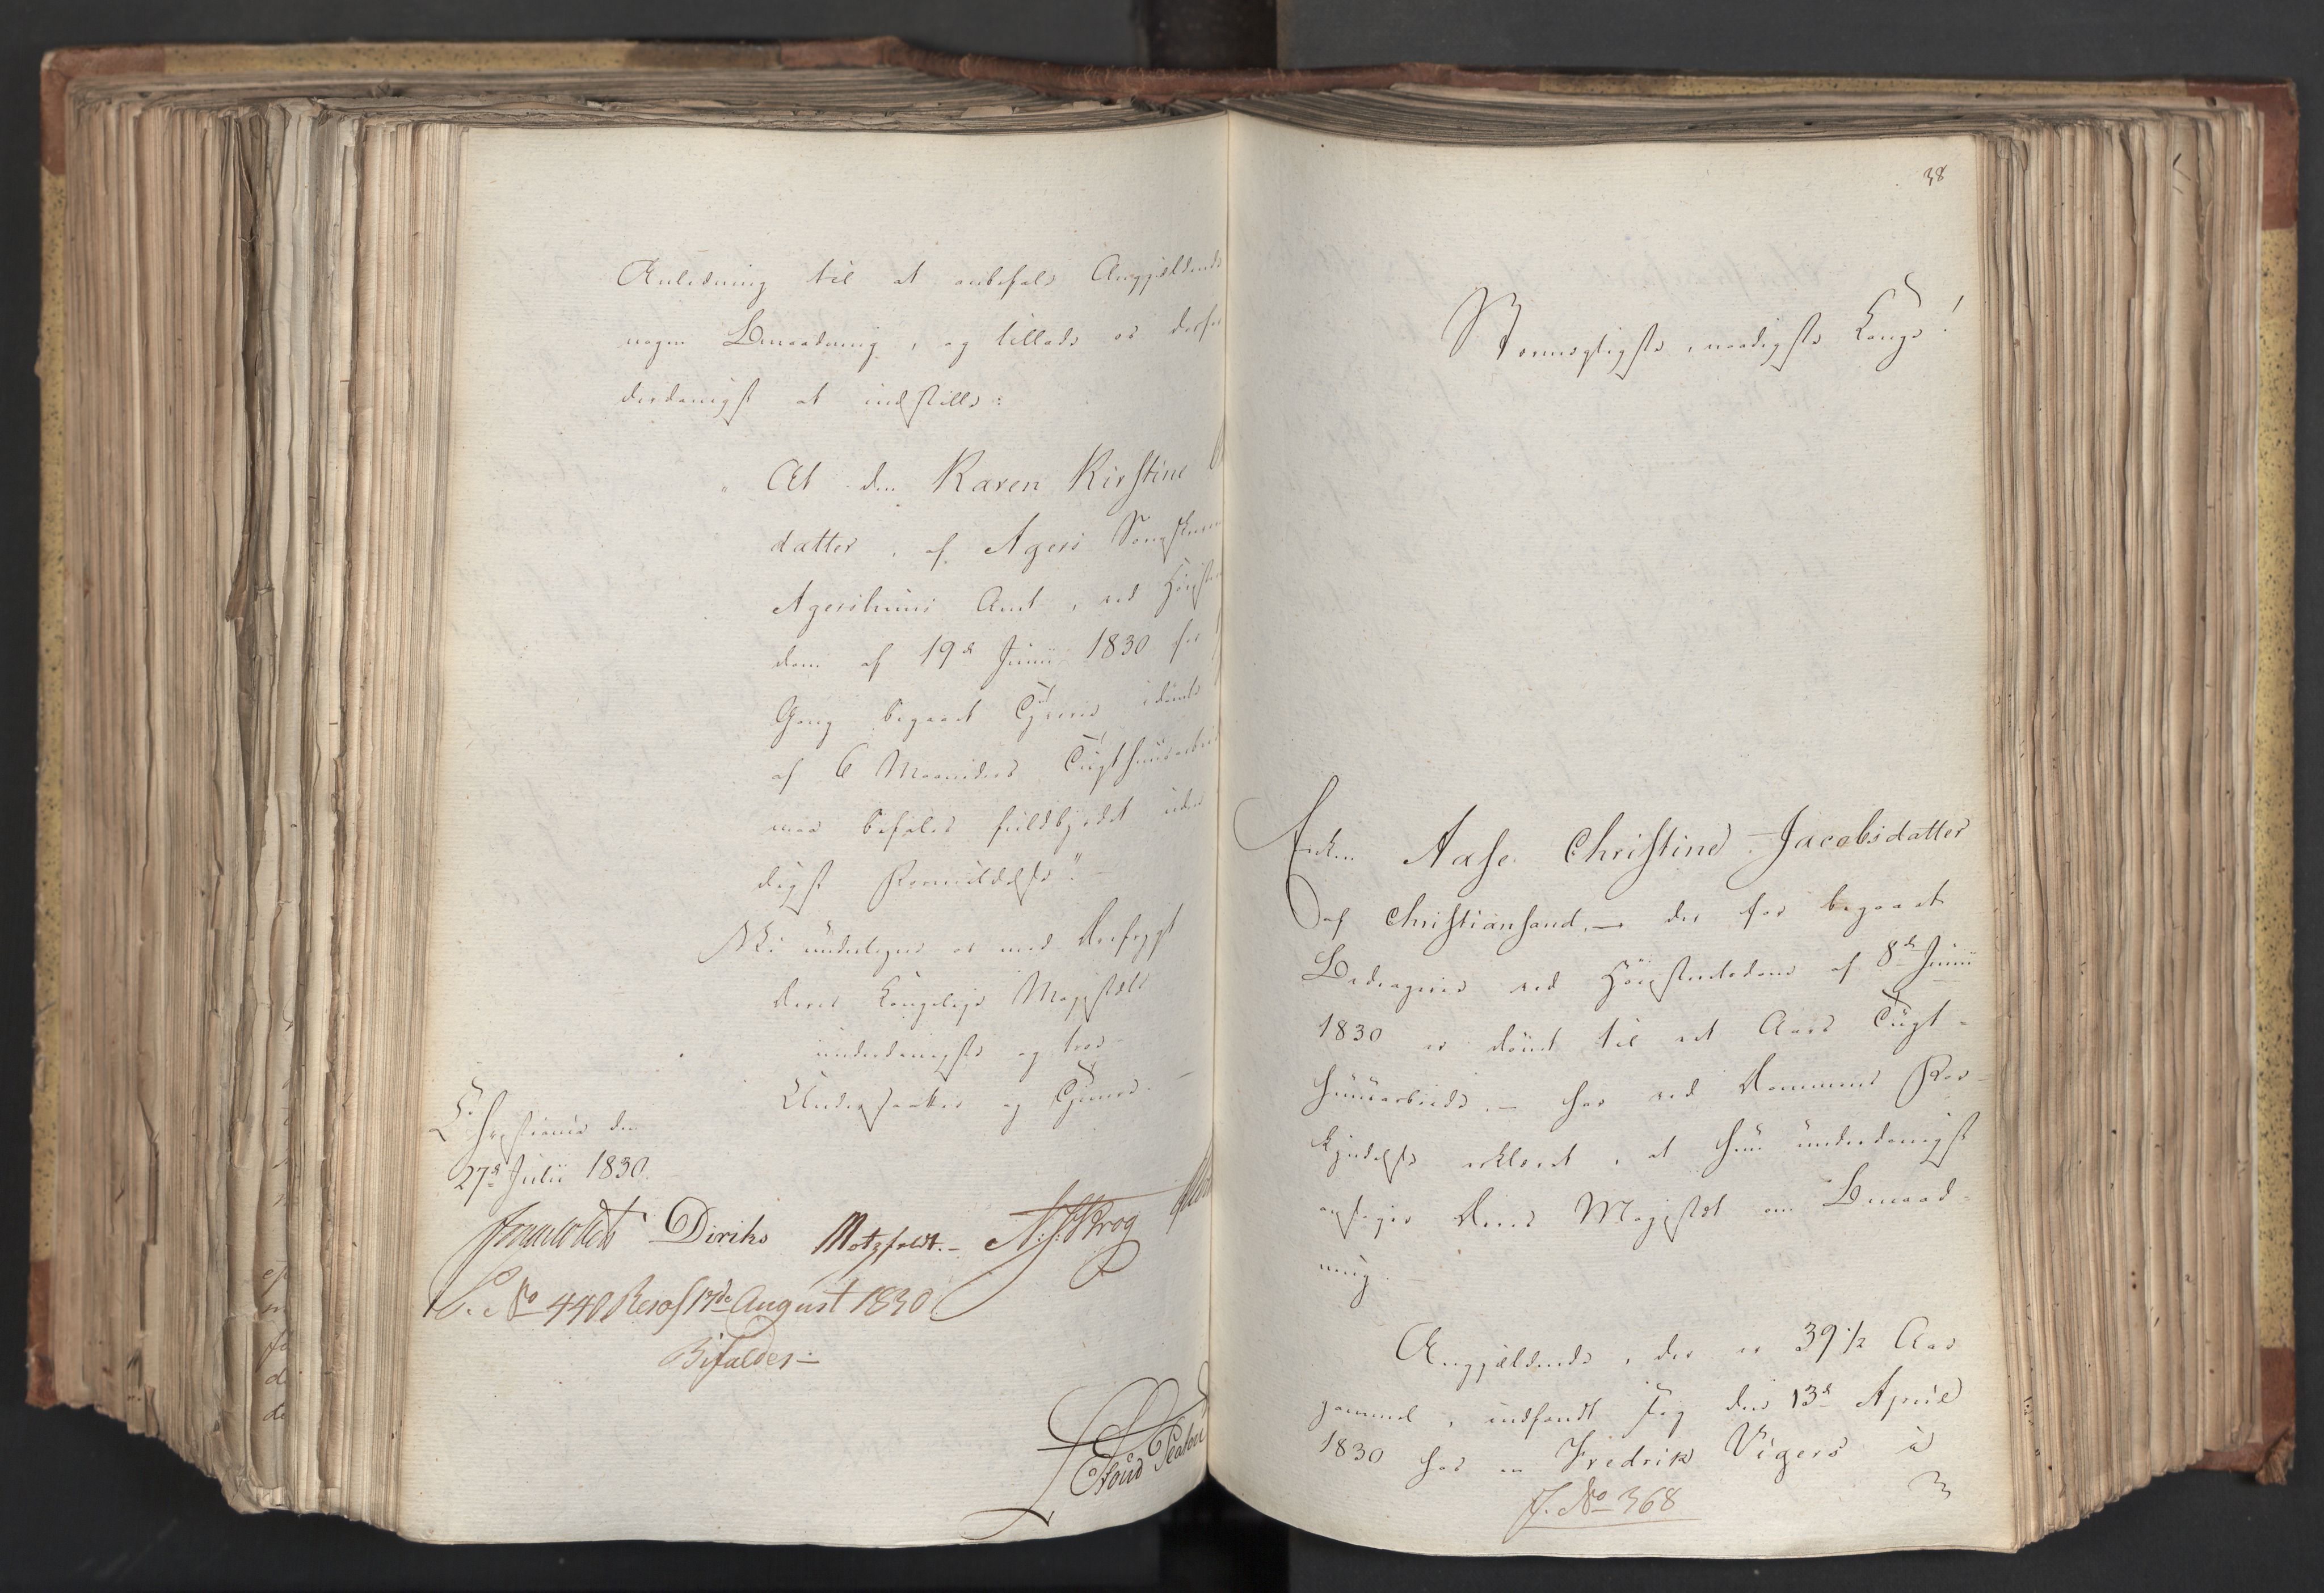 Anledning til at anbefale Angjældende
nogen Benaadning, og tillade os derfor
derdanigst at indstille:
"At den Karen Kirstine
datter, af Agers Sognskun
Agershuus Amt, ved Høieste
dom af 19de Junii 1830 for
Gang begaaet Tyverie idömte
af 6 Maaneders Tugthuusarbeid
maa befales fuldbyrdet uden
digst Formildelse".-
Vi undertegne os med Ærefrygt
Deres Kongelige Majestæts
underdanigste og troe-
Undersaatter og Tjenere.-
Christiania den
27de Julii 1830.
Diriks Motzfeldt.- Krog
S. No 440 Resol 17de August 1830
Bifaldes-
38
Stormægtigste, naadigste Konge!
Enken Aase Christine Jacobsdatter
af Christiansand,- der for begaaet
Bedragerie ved Höiesteretsdom af 8de Junii
1830 er dömt til et Aars Tugt-
huusarbeide,- har ved Dommens For-
kyndelse erklæret, at hun underdanigst
ansøger Deres Majestæt om Benaad-
ning.
Angjældende, der er 39 1/2 Aar
gammel, indfandt sig den 13de April
1830 hos en Fredrik Vigers i
J. No 368